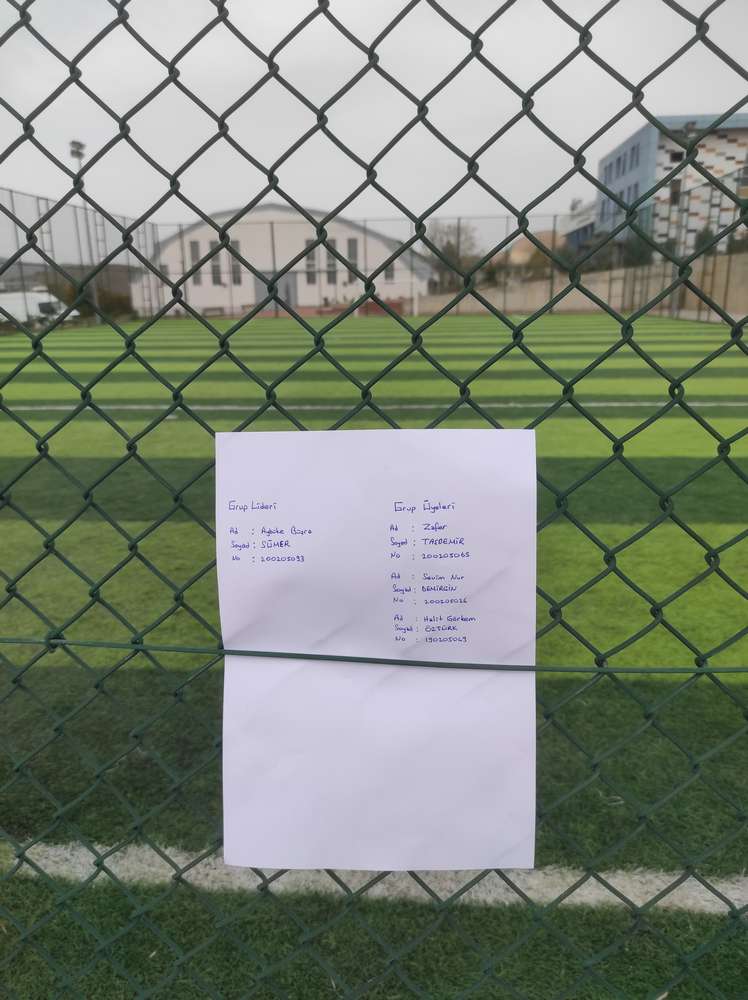 Grup Lideri
Ad : Aybüke Büşra
Soyad : SÜMER
No : 200205033
Grup Üyeleri
Ad : Zafer
Soyad : TAŞDEMİR
No : 200205065
Ad : Sevim Nur
Soyad : DEMİRGİN
No : 200205026
Ad : Halit Görkem
Soyad : ÖZTÜRK
No : 190205049